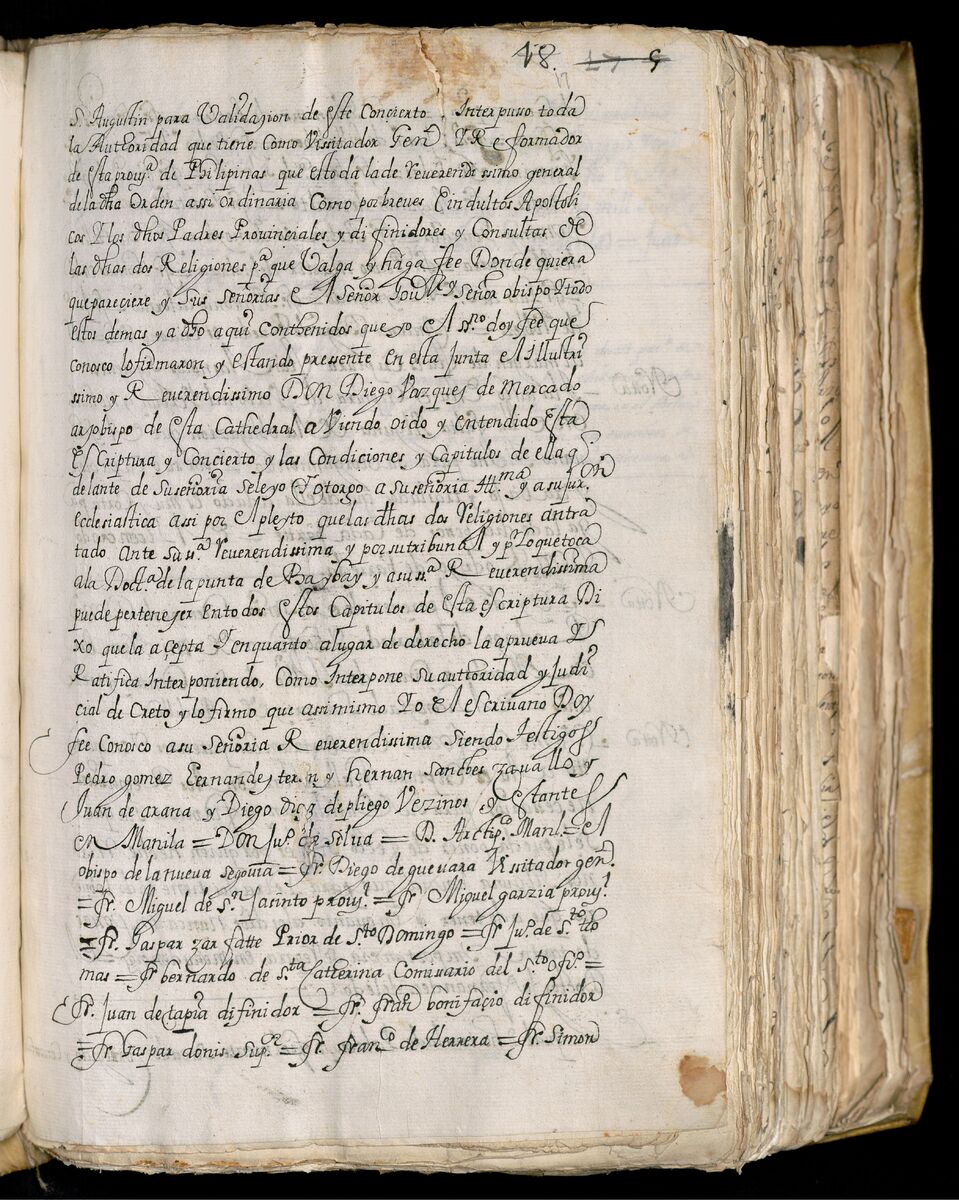 18. 17 9
17
S. Augustin para Validasion de este Concierto. Interpuso toda
la Authoridad que tiene Como Vissitador Gen.l Y Reformador
de esta prouy.a de Philipinas que es toda la de Reverendissimo general
de la dha Orden assi ordinaria Como por breves E indultos Apostoli
cos Y los dhos Padres Provinciales y difinidores y Consultas de
las dhas dos Religiones p.a que Valga y haga fee Donde quiera
que pareciere y Sus señorias El Señor Gou.or y Señor obispo Y todo
estos demas y a dho aqui Conthenidos que yo El s.no doy fee que
conosco lo firmaron y estando pressente En esta Junta el Illustri
ssimo y Reverendissimo Don Diego Vazques de Mercado
arsobispo de esta Cathedral aViendo oido y Entendido esta
Escriptura y Concierto y las Condiciones y Capitulos de ella q.e
delante de Suseñoria Seleyo Y otorgo a suseñoria Ill.ma y a su jur.on
Ecclesiastica assi por el pleyto que las dhas dos Religiones an tra
tado ante su s.a Reverendissima y por su tribunal y p.r lo que toca
a la Doct.a de la punta de Baybay y a su s.a Reverendissima
puede perteneser En todos Estos Capitulos de Esta escriptura Di
xo que la açepta Y en quanto a lugar de derecho la aprueva Y
Ratifica Interponiendo, Como Interpone Su authoridad y Judi
cial de Creto y lo firmo que assimismo Yo El escrivano Doy
fee Conosco a su Señoria Reverendissima siendo Testigos
Pedro gomez Eernandes ter.n y Hernan Sanches zavallo y
Juan de arana y Diego diez de pliego Vezinos y Estantes
en Manila = Don Ju.o de silva = D. Archip.o Manl. = El
obispo de la nueva segovia = fr. Diego de guevara Vissitador gen.l
= fr. Miguel de s.n Jacinto prouy.l = fr Miguel garzia prouy.l
= fr. Gaspar zarfatte Prior de S.to Domingo = fr Ju.o de s.to tho
mas = fr bernardo de s.ta Catherina Comissario del s.to ofi.o =
fr. Juan de tapia difinidor = fr. fran.co bonifaçio difinidor
= fr Gaspar donis Sup.or = fr. fran.co de Herrera = fr. Simon